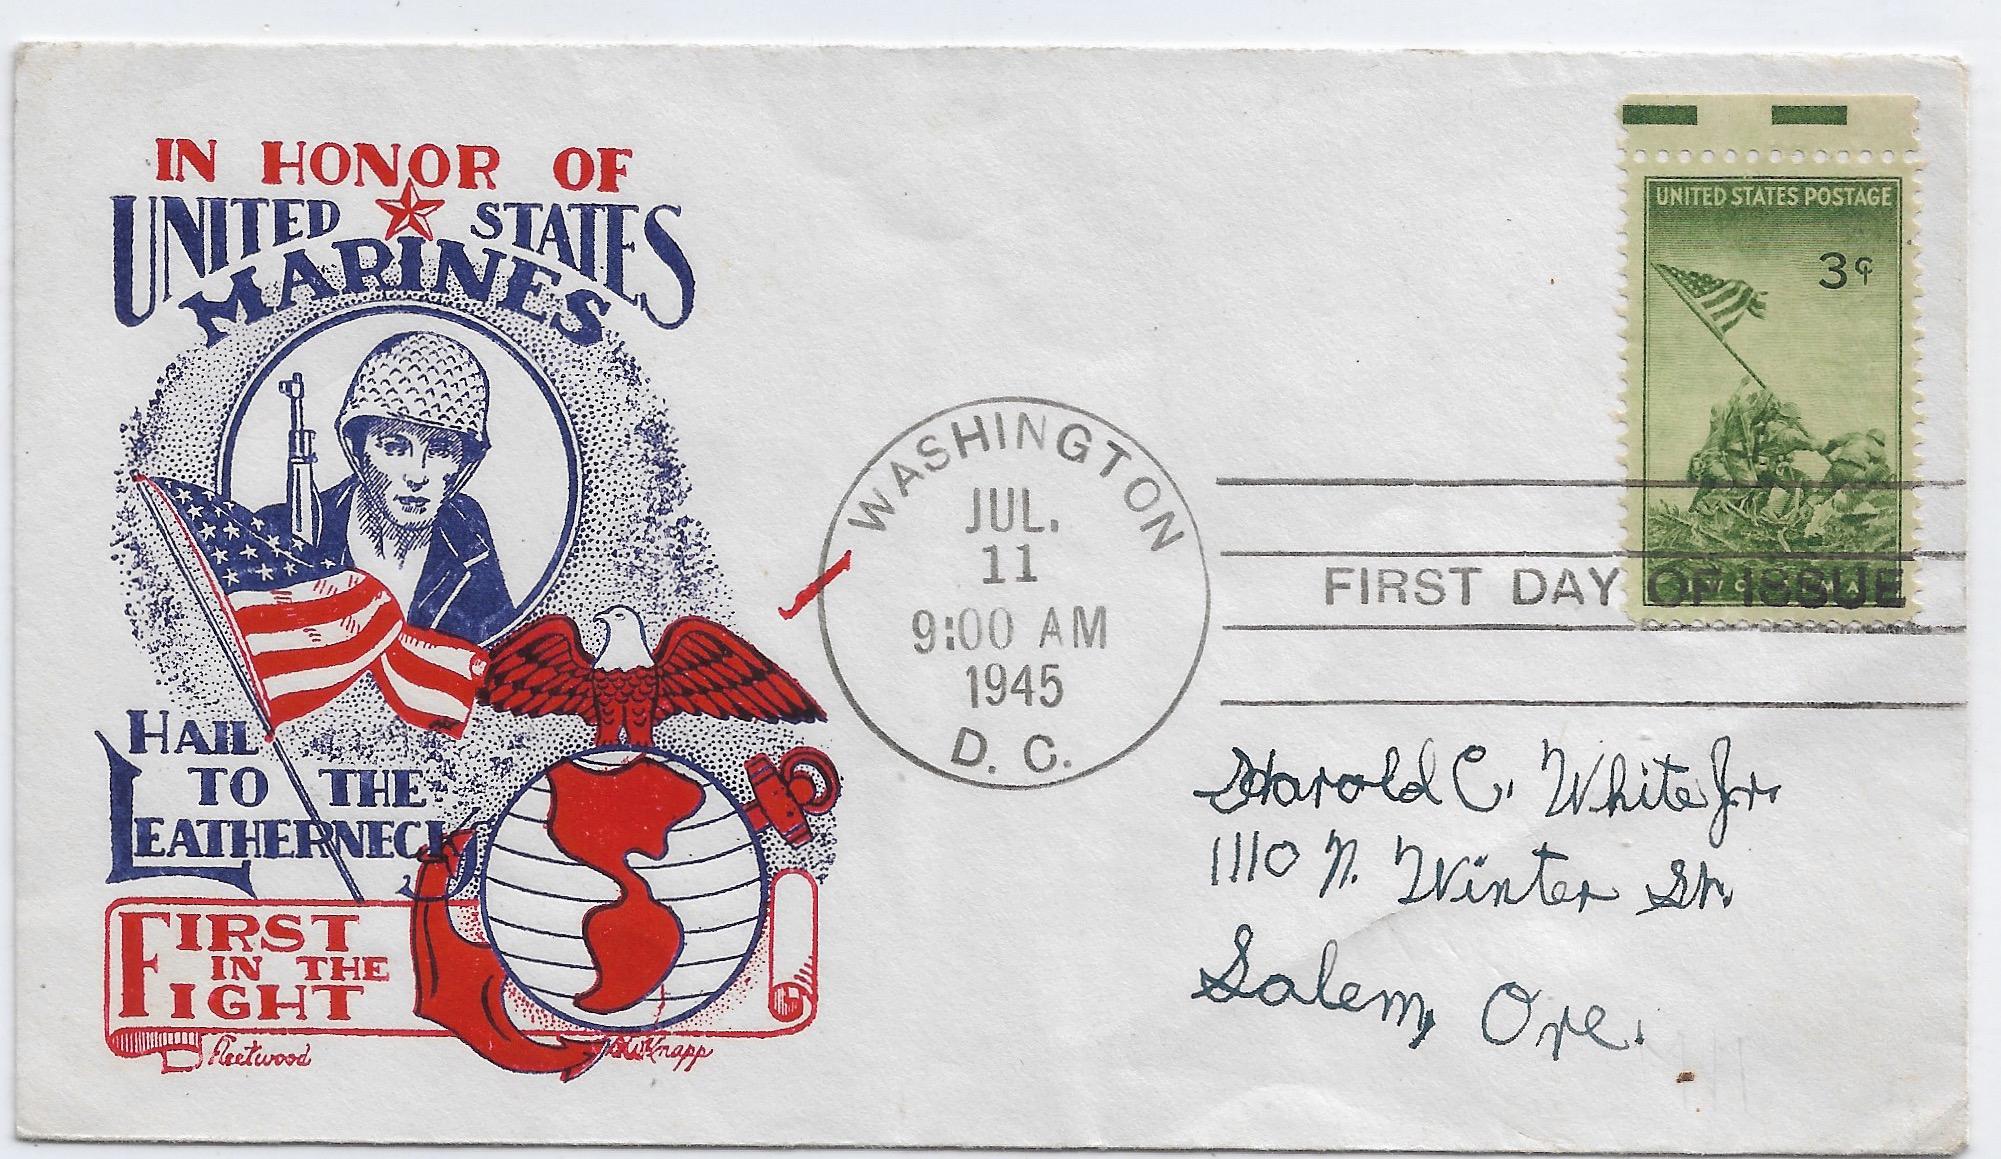 IN HONOR OF
UNITED STATES
MARINES
HAIL
TO THE
LEATHERNECK
FIRST
IN THE
FIGHT
Fleetwood
Knapp
WASHINGTON
JUL.
11
9:00 AM
1945
D. C.
FIRST DAY OF ISSUE
UNITED STATES POSTAGE
3¢
Harold C. White Jr.
1110 N. Winter St.
Salem, Ore.